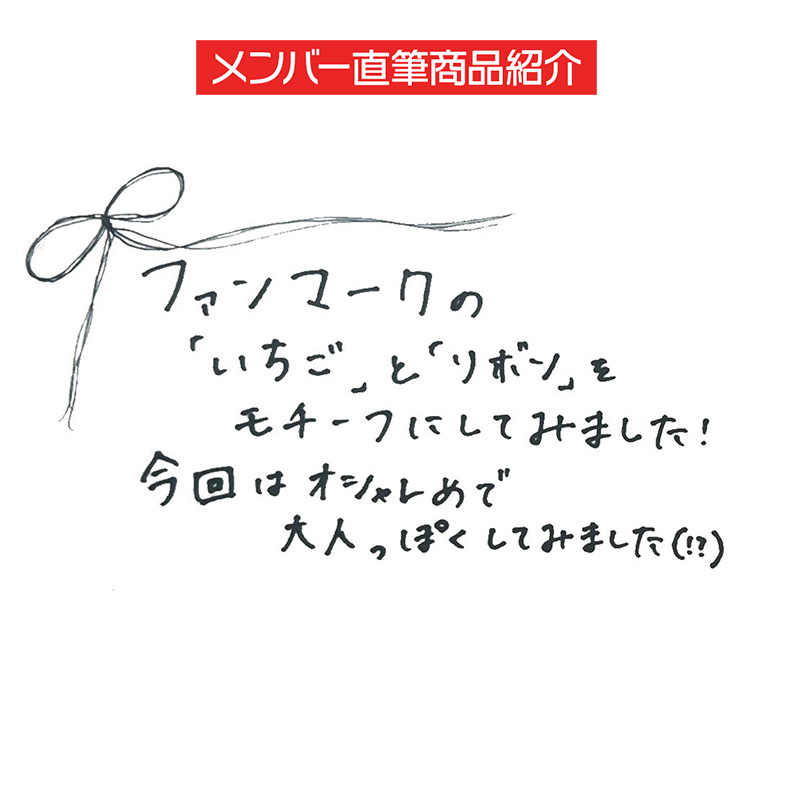 メンバー直筆商品紹介
ファンマークの
「いちご」と「リボン」を
モチーフにしてみました!
今回はオシャレめで
大人っぽくしてみました(!?)